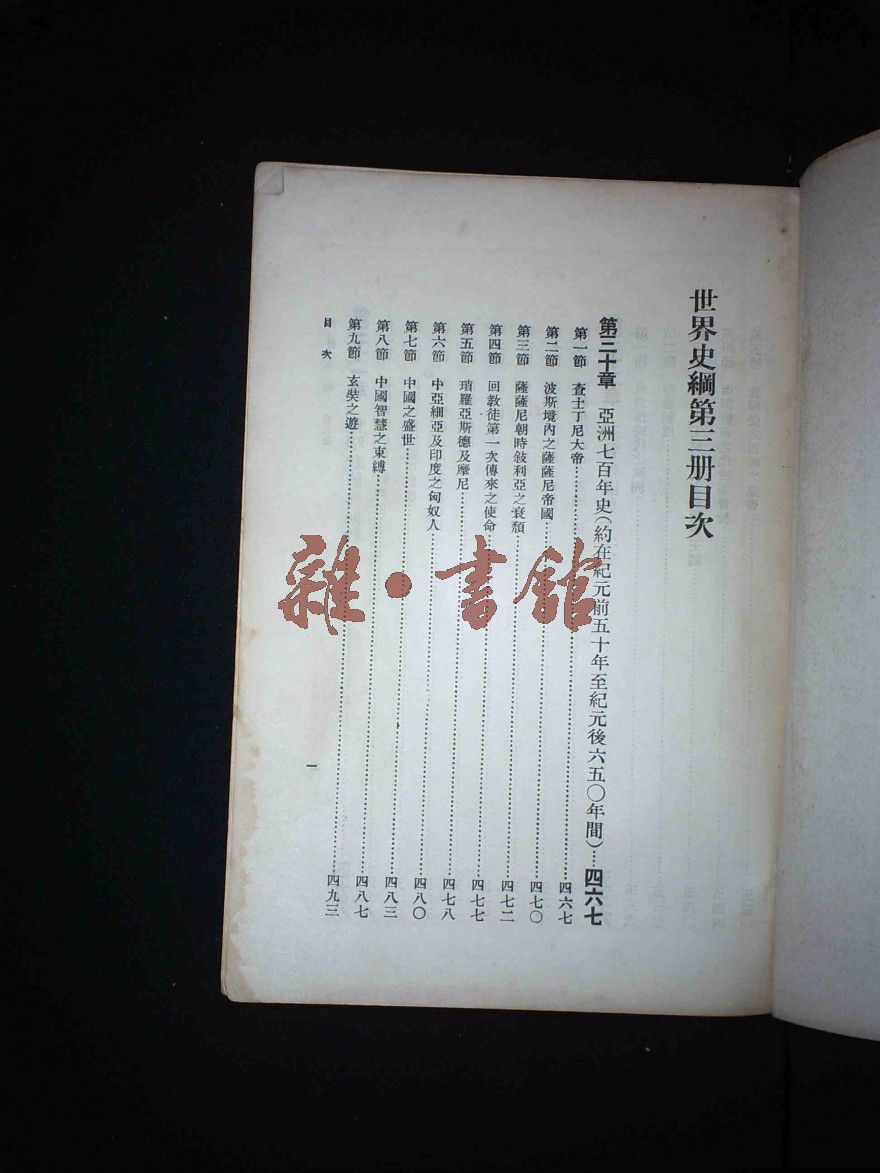 世界史綱第三册目次
第三十章　亞洲七百年史(約在紀元前五十年至紀元後六五〇年間)……四六七
第一節　查士丁尼大帝……四六七
第二節　波斯境內之薩薩尼帝國……四七〇
第三節　薩薩尼朝時敍利亞之衰頹……四七二
第四節　回教徒第一次傳來之使命……四七七
第五節　瑣羅亞斯德及摩尼……四七八
第六節　中亞細亞及印度之匈奴人……四八〇
第七節　中國之盛世……四八三
第八節　中國智慧之束縛……四八七
第九節　玄奘之遊……四九三
目次
一
雜·書館